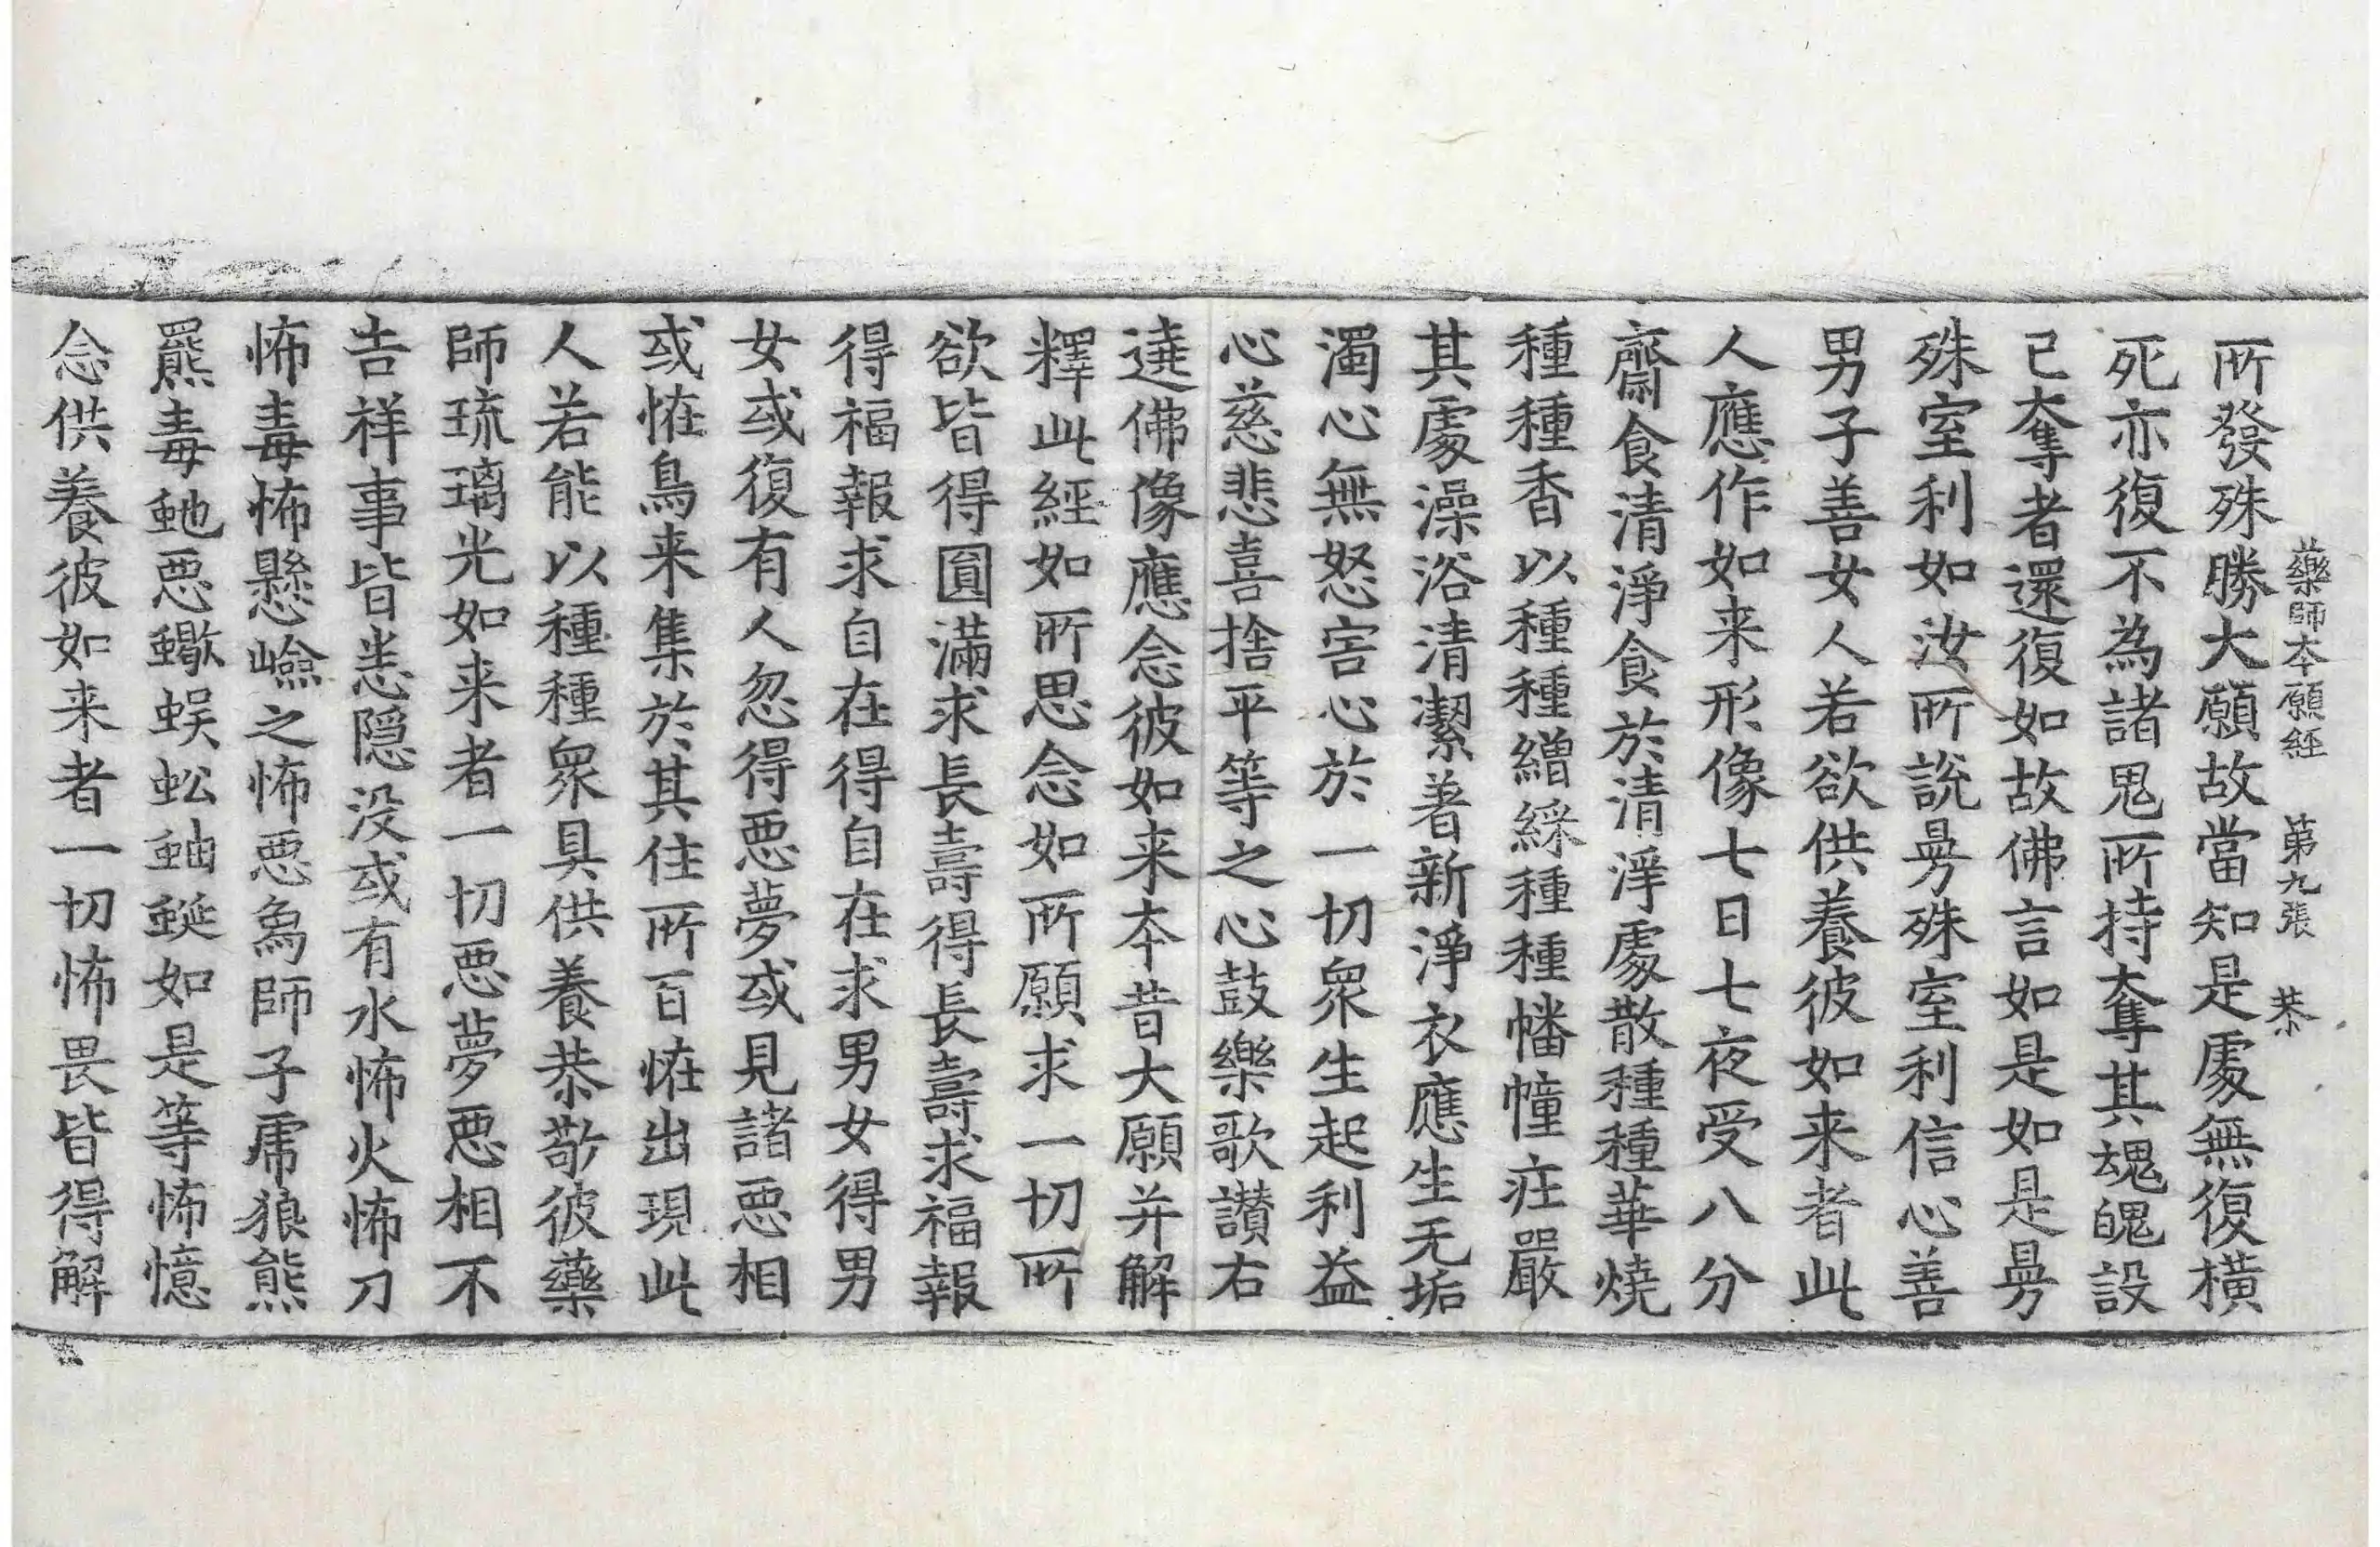 藥師本願經 第九張 恭
所發殊勝大願故當知是處無復橫
死亦復不為諸鬼所持奪其魂魄設
已奪者還復如故佛言如是如是曼
殊室利如汝所說曼殊室利信心善
男子善女人若欲供養彼如来者此
人應作如来形像七日七夜受八分
齋食清淨食於清淨處散種種華燒
種種香以種種繒綵種種幡幢庄嚴
其處澡浴清潔著新淨衣應生无垢
濁心無怒害心於一切衆生起利益
心慈悲喜捨平等之心鼓樂歌讃右
遶佛像應念彼如来本昔大願并解
釋此經如所思念如所願求一切所
欲皆得圓滿求長壽得長壽求福報
得福報求自在得自在求男女得男
女或復有人忽得惡夢或見諸惡相
或恠鳥来集於其住所百恠出現此
人若能以種種衆具供養恭敬彼藥
師琉璃光如来者一切惡夢惡相不
吉祥事皆悉隱没或有水怖火怖刀
怖毒怖懸嶮之怖惡象師子虎狼熊
羆毒虵惡蠍蜈蚣蚰蜒如是等怖憶
念供養彼如来者一切怖畏皆得解